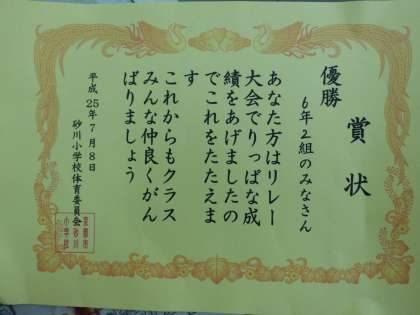 賞状
優勝
6年2組のみなさん
あなた方はリレー
大会でりっぱな成
績をあげましたの
でこれをたたえま
す
これからもクラス
みんな仲良くがん
ばりましょう
平成25年7月8日
砂川小学校体育委員会